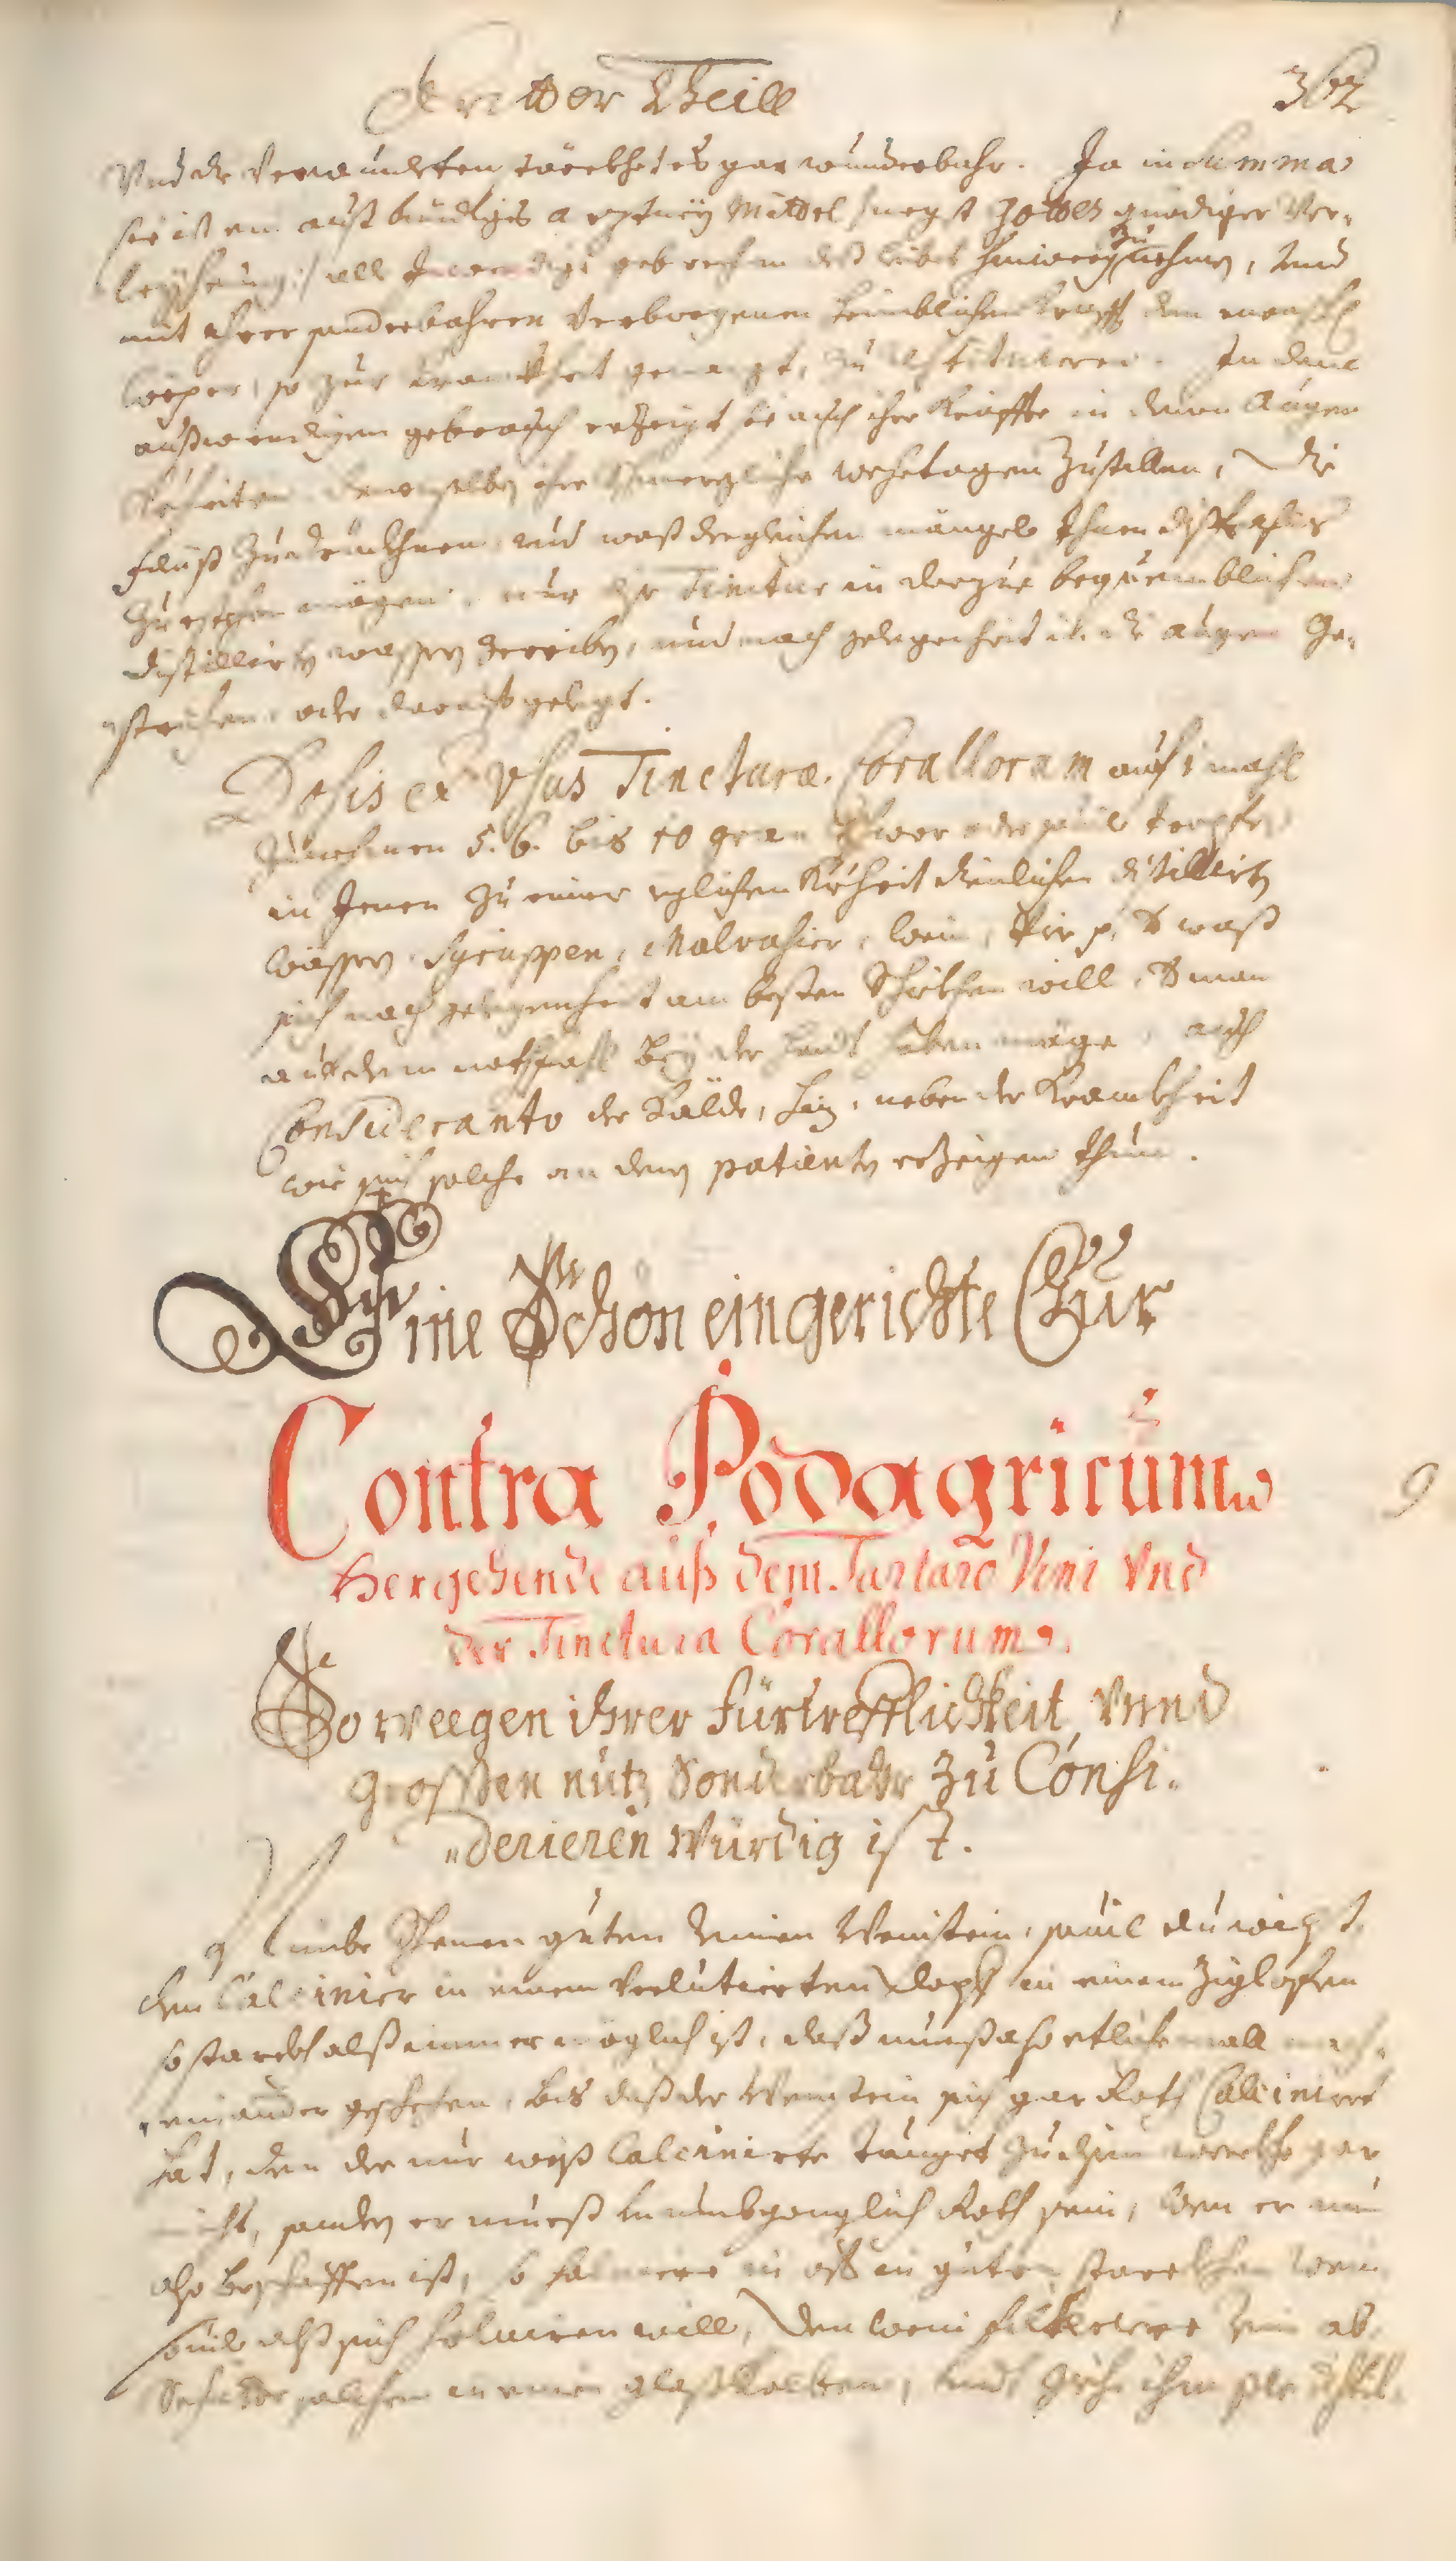 Dritter Theill 302
Und die verwundten stärckhet es gar wunderbahr. Ja in Summa
sie ist ein auß bündtiges arztney Mittel /: negst Gottes gnädiger Ver-
leyhung :/ all Inwendige gebrechen deß leibs hinweg zu nehmen, und
mit ihrer sonderbahren verborgenen heimblichen Krafft den mensch
Cörper, so zur kranckheit geneigt, zu restituieren. In dem
außwendigen gebrauch erzeigt sie auch ihre Kräffte in denen Augen
denenselben ihre schmerzliche wehetagen zustillen, die
Flüß zu und waß dergleichen mängel Ihnen
mögen, nur die Tinctur in darzue bequemblichen
distillirten wassern zerriben, und nach gelegenheit in die augen ge-
strichen, oder darauf gelegt.
Dosis et Usus Tincturæ Corallorum auf 1 mahl
Zunehmen 5. 6. bis 10 gran schwer oder souil tropfen
in Jenen zu einer yglichen Krheit dienlichen distillirten
wassern, Syruppen, Malvasier, wein, Bir p. waß
sich nach gelegenheit am besten Schickhen will, man
auf den nothfahl bey der handt haben möge, auch
Considerando der Kälde, Hiz, neben der Kranckheit
wie sich solche an dem patienten erzeigen thuet.
Eine Schön eingerichte Cur
Contra Podagricum
Hergehende auß dem Tartaro Vini Und
der Tinctura Corallorum.
So weegen ihrer fürtrefflichkeit Vnnd
grossen nutz Sonderbahr zu Consi-
derieren würdig ist.
9
Nimbe Schenen guten reinen Weinstein, souil du wilst,
den Calcinier in einem verlutierten Topff in einem Ziglofen
so starckh alß immer möglich ist, daß mueß also etlichmall nach-
einander geschehen, bis daß der Weinstein sich gar Roth Calcinirt
hat, den der nur weiß Calcinirte tauget zu disem werckh gar
nicht, sonder er mueß unumbgänglich Roth sein, wen er nun
also beschaffen ist, so solviere in oft in guten starckhen wein
souil alß sich solviren will, den wein filtriere und ab
solchen in einen glaßkolben, und ziehe ihm